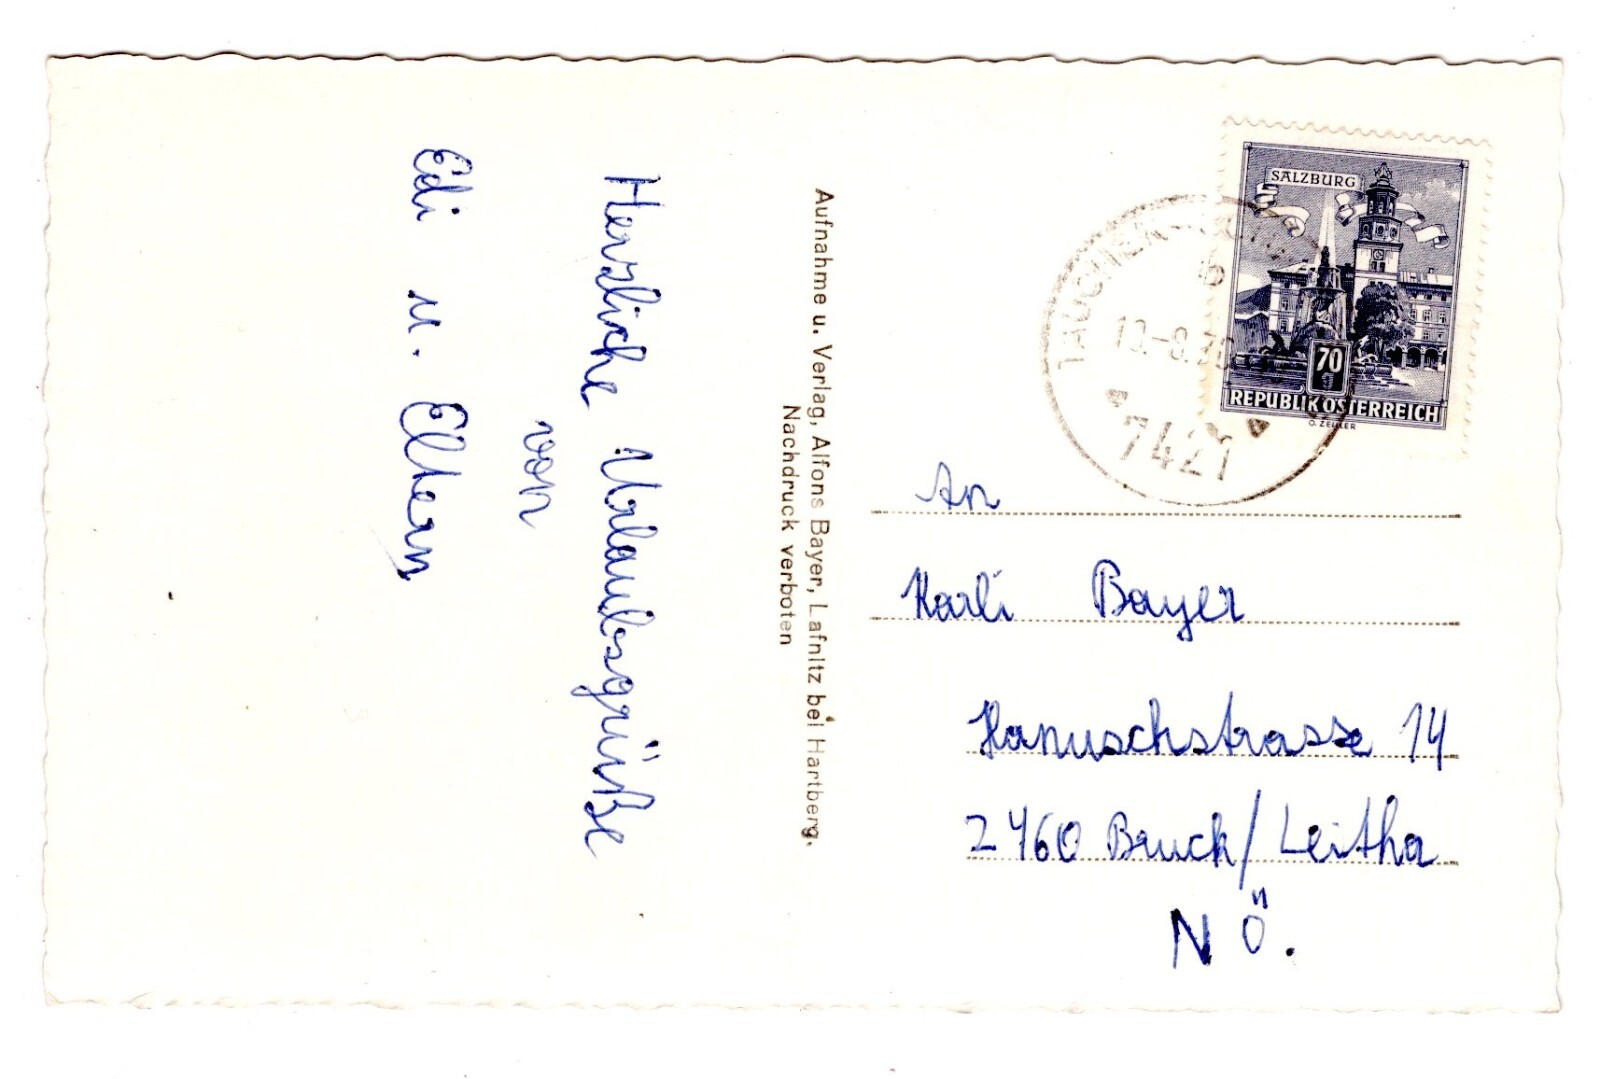 Herzliche Urlaubsgrüße
von
Edi u. Eltern
Aufnahme u. Verlag, Alfons Bayer, Lafnitz bei Hartberg.
Nachdruck verboten
SALZBURG
70
REPUBLIK ÖSTERREICH
O. ZEILLER
7421
An
Karli Bayer
Hanuschstrasse 14
2460 Bruck/Leitha
NÖ.